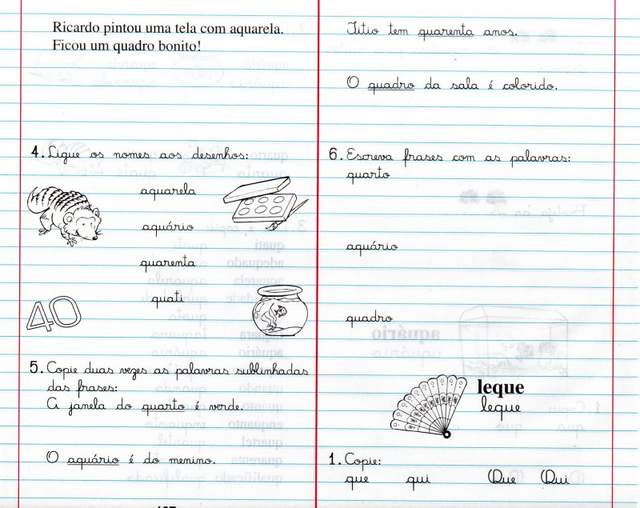 Ricardo pintou uma tela com aquarela.
Ficou um quadro bonito!
4. Ligue os nomes aos desenhos:
aquarela
aquário
quarenta
quati
40
5. Copie duas vezes as palavras sublinhadas
das frases:
A janela do quarto é verde.
O aquário é do menino.
Titio tem quarenta anos.
O quadro da sala é colorido.
6. Escreva frases com as palavras:
quarto
aquário
quadro
leque
leque
1. Copie:
que qui Que Qui